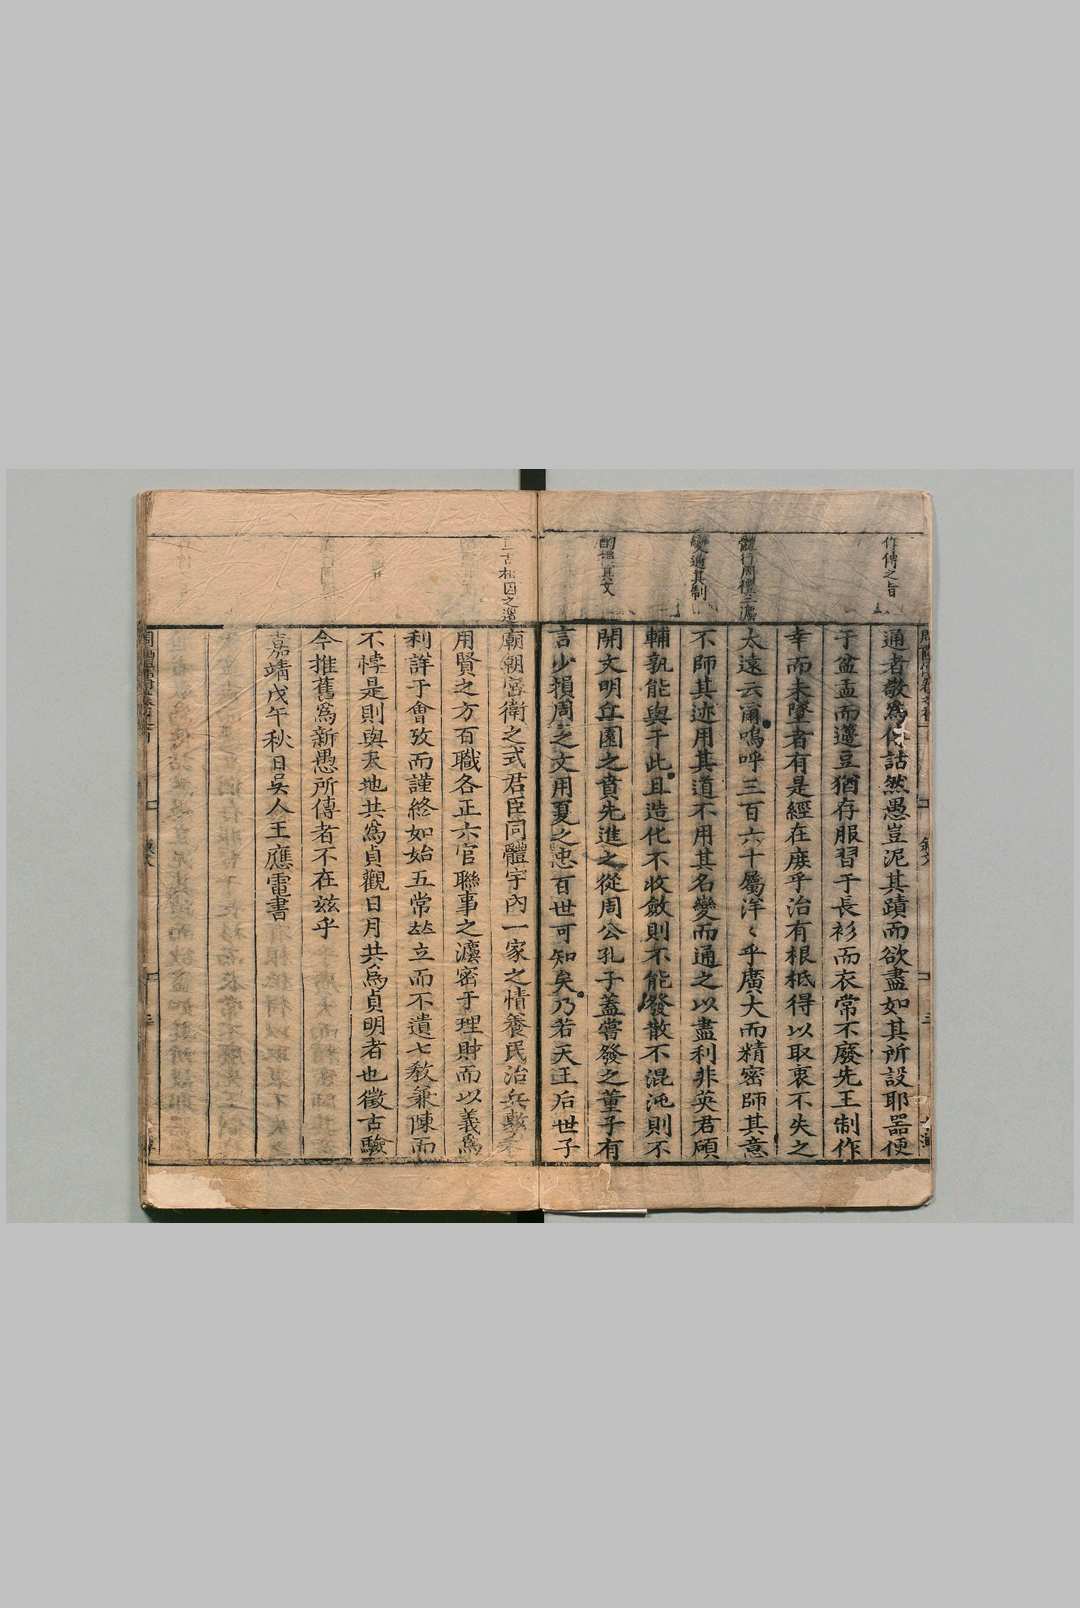 作傳之旨
通者敬為作詁然愚豈泥其蹟而欲盡如其所設耶器便
于盆盂而籩豆猶存服習于長衫而衣常不廢先王制作
幸而未墜者有是經在庶乎治有根柢得以取衷不失之
體行周禮之
太遠云爾嗚呼三百六十屬洋〻乎廣大而精密師其意
變通其制
不師其迹用其道不用其名變而通之以盡利非英君碩
輔孰能與于此且造化不收斂則不能發散不混沌則不
酌損其文
開文明丘園之賁先進之從周公孔子蓋嘗發之董子有
言少損周之文用夏之忠百世可知矣乃若天王后世子
廟朝宮衛之式君臣同體宇內一家之情養民治兵
用賢之方百職各正六官聯事之灋密于理財而以義為
利詳于會攷而謹終如始五常竝立而不遺七教兼陳而
不悖是則與天地共為貞觀日月共為貞明者也徵古驗
今推舊為新愚所傳者不在玆乎
嘉靖戊午秋日吳人王應電書